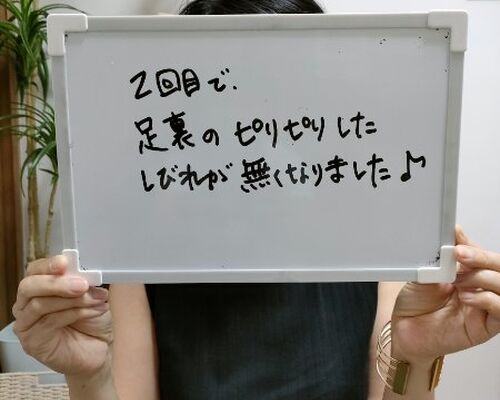 2回目で、
足裏のピリピリした
しびれが無くなりました♪